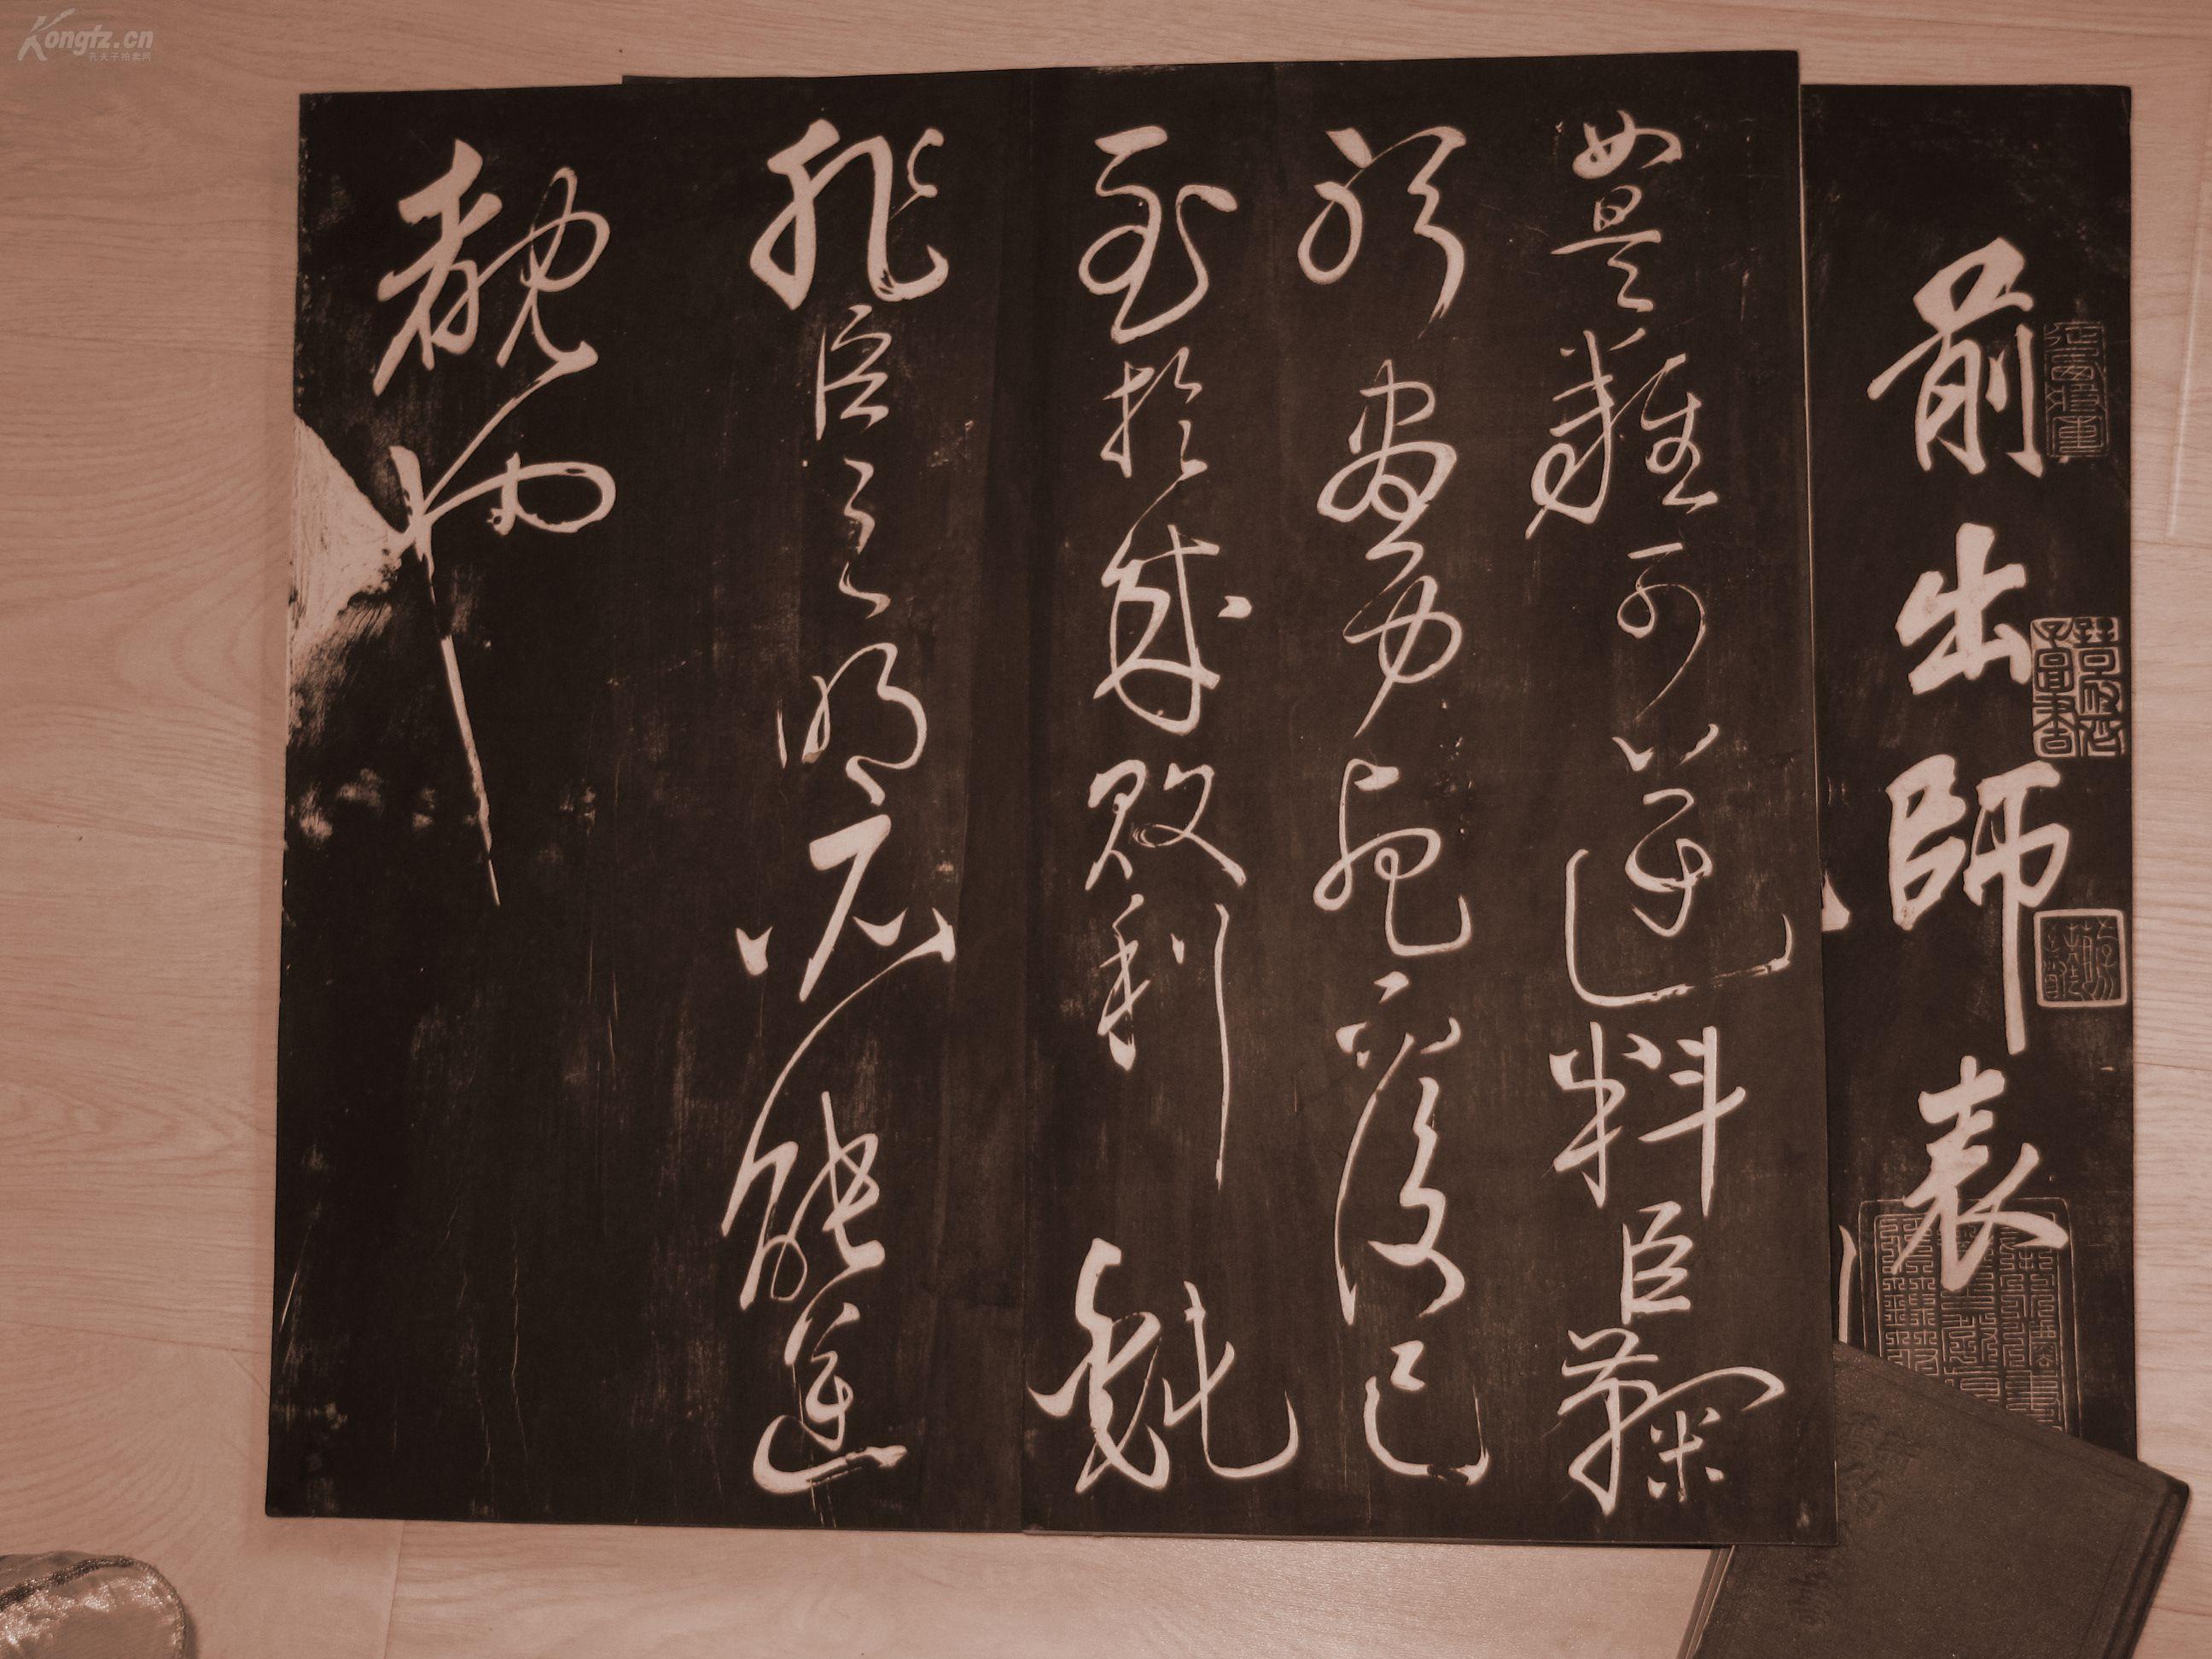 前出師表
如是難可逆料臣鞠
躬盡力死而後已
至於成敗利鈍
非臣之明所能逆
覩也
Kongfz.cn
孔夫子拍卖网